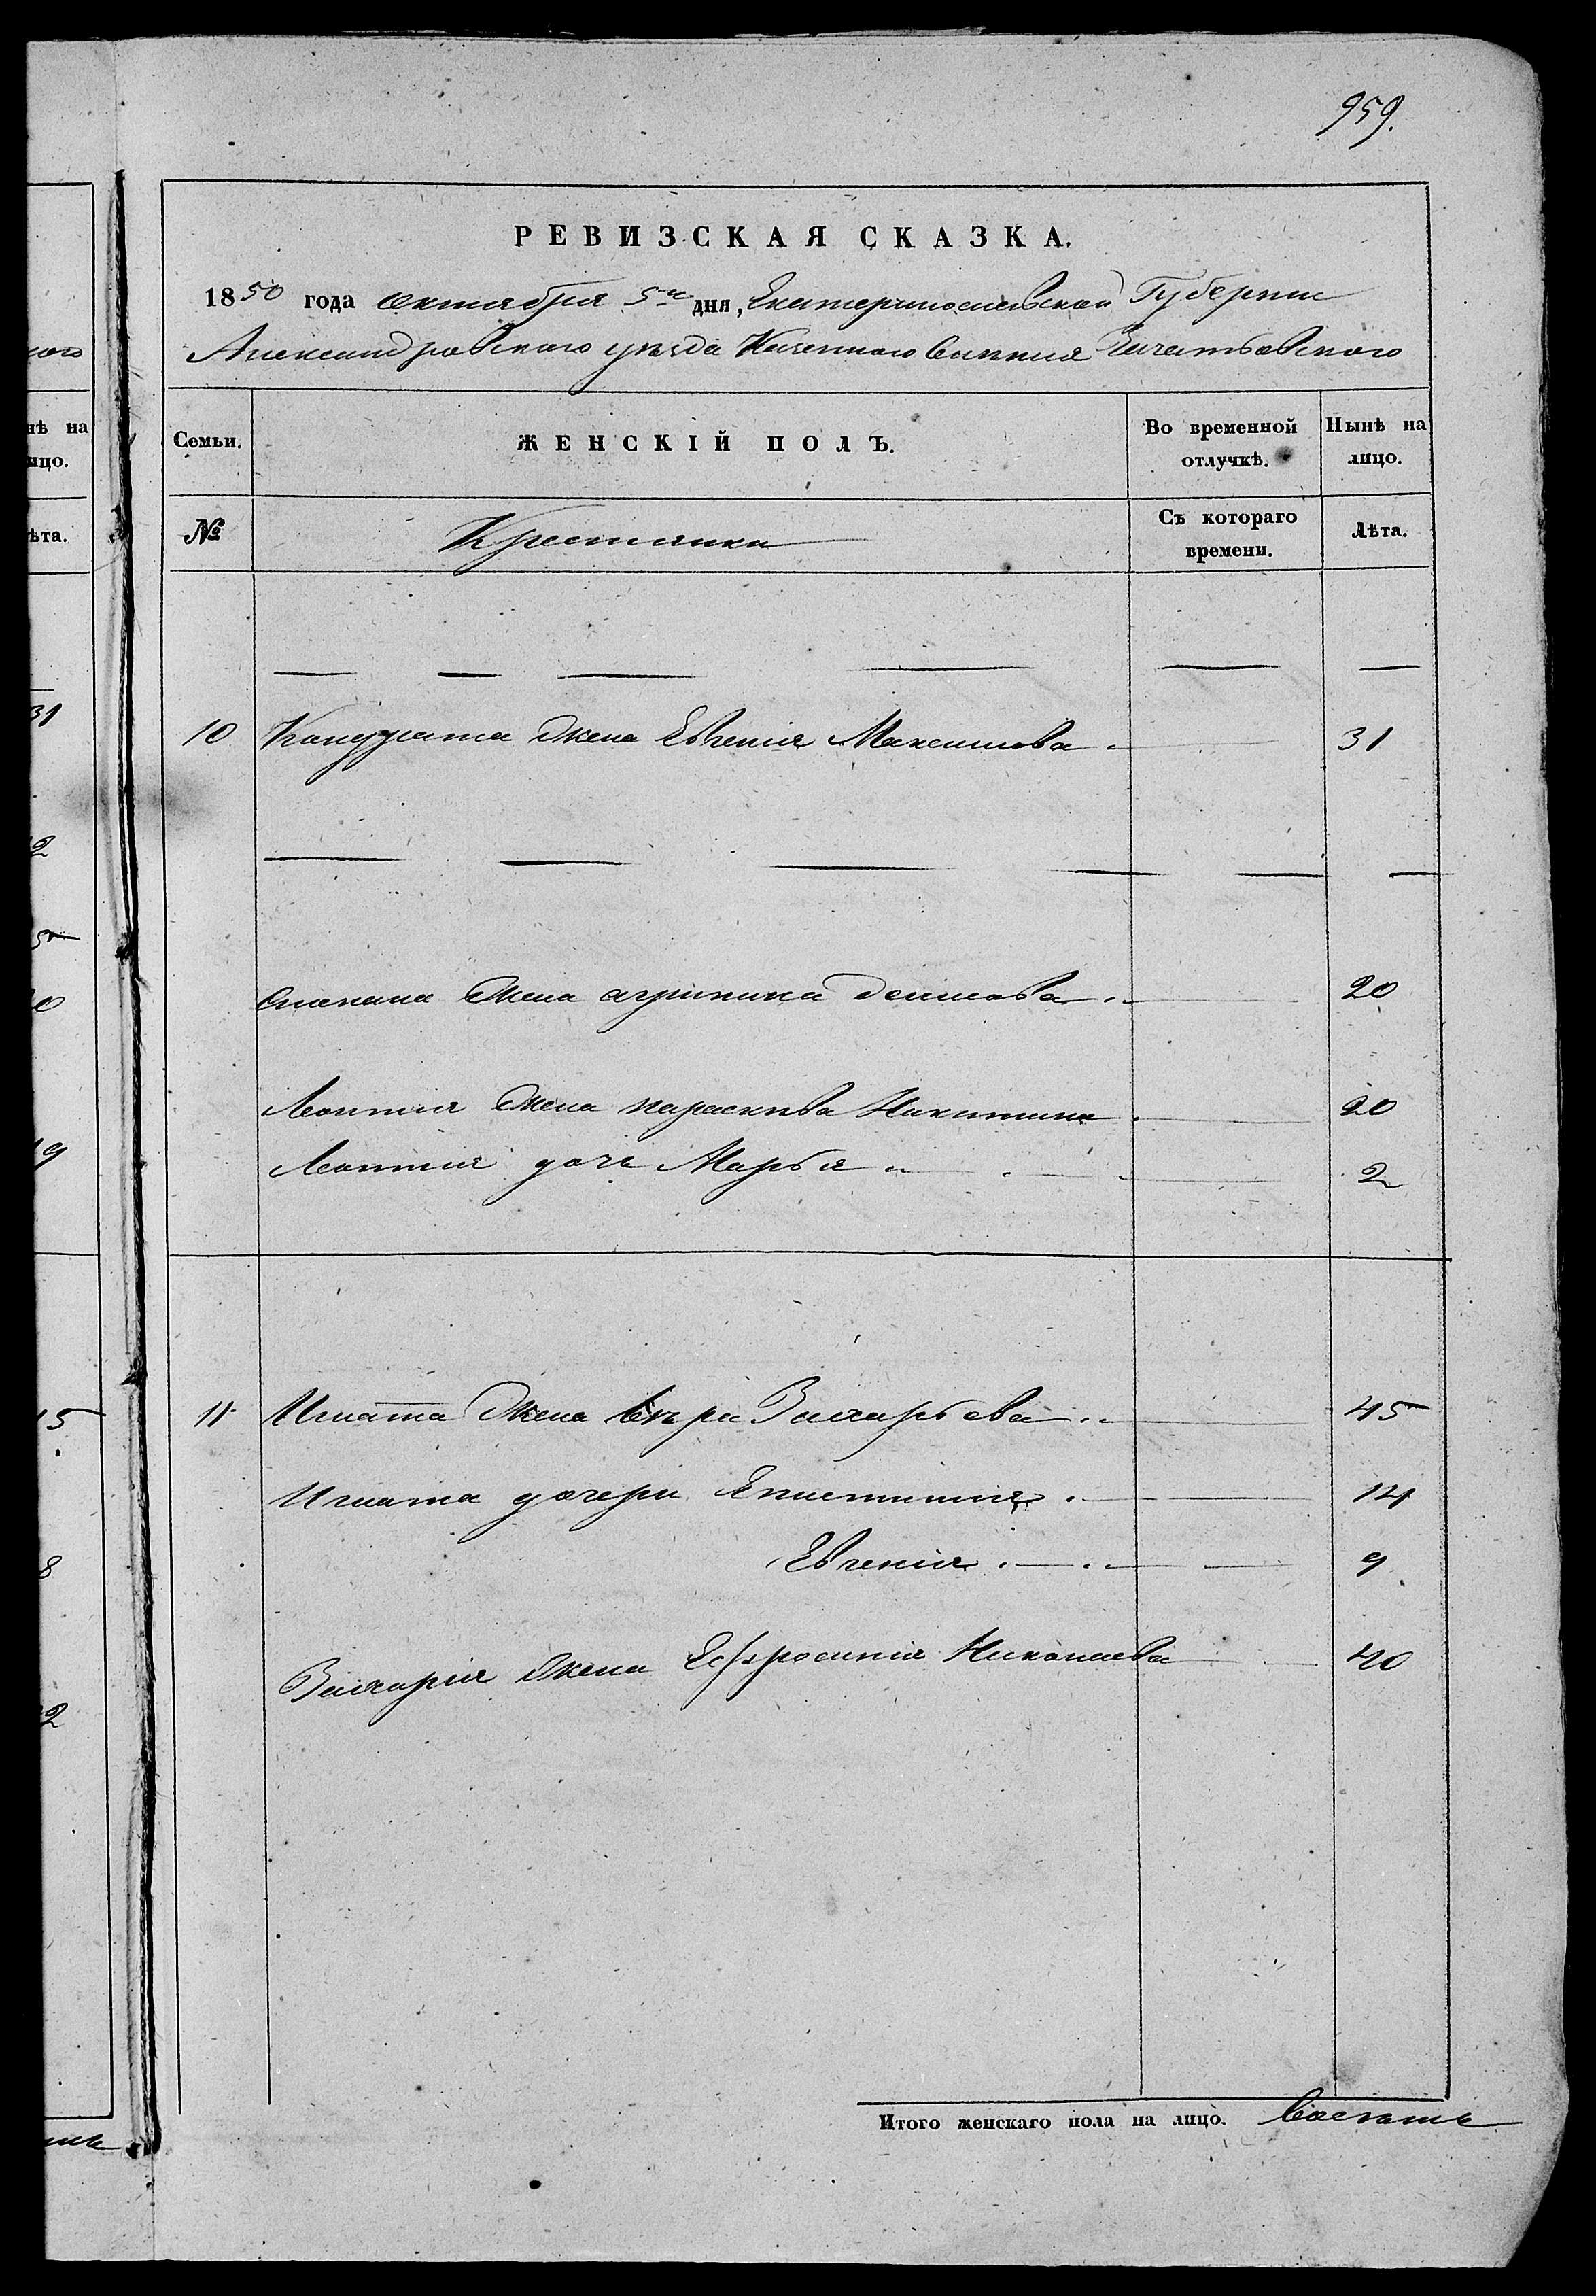 959.
РЕВИЗСКАЯ СКАЗКА.
1850 года октября 5го дня, Екатеринославской Губернии
Александровского уезда Казенного Селения Зачатьевского
Семьи. ЖЕНСКІЙ ПОЛЪ. Во временной отлучкѣ. Нынѣ на лицо.
№ Крестянки Съ котораго времени. Лѣта.
10 Кондрата Жена Евгенія Максимова 31
Жена агрипина денисова 20
Леонтия Жена параскева Никитина 20
Леонтия дочь Марья 2
11 Игната Жена Вера Захарьева 45
Игната дочери Епистимия 14
Евгенія 9
Захария Жена Ефросинія Николаева 40
Итого женскаго пола на лицо. Восемь
ного
нѣ на
ицо.
ѣта.
31
2
5
0
19
15
8
2